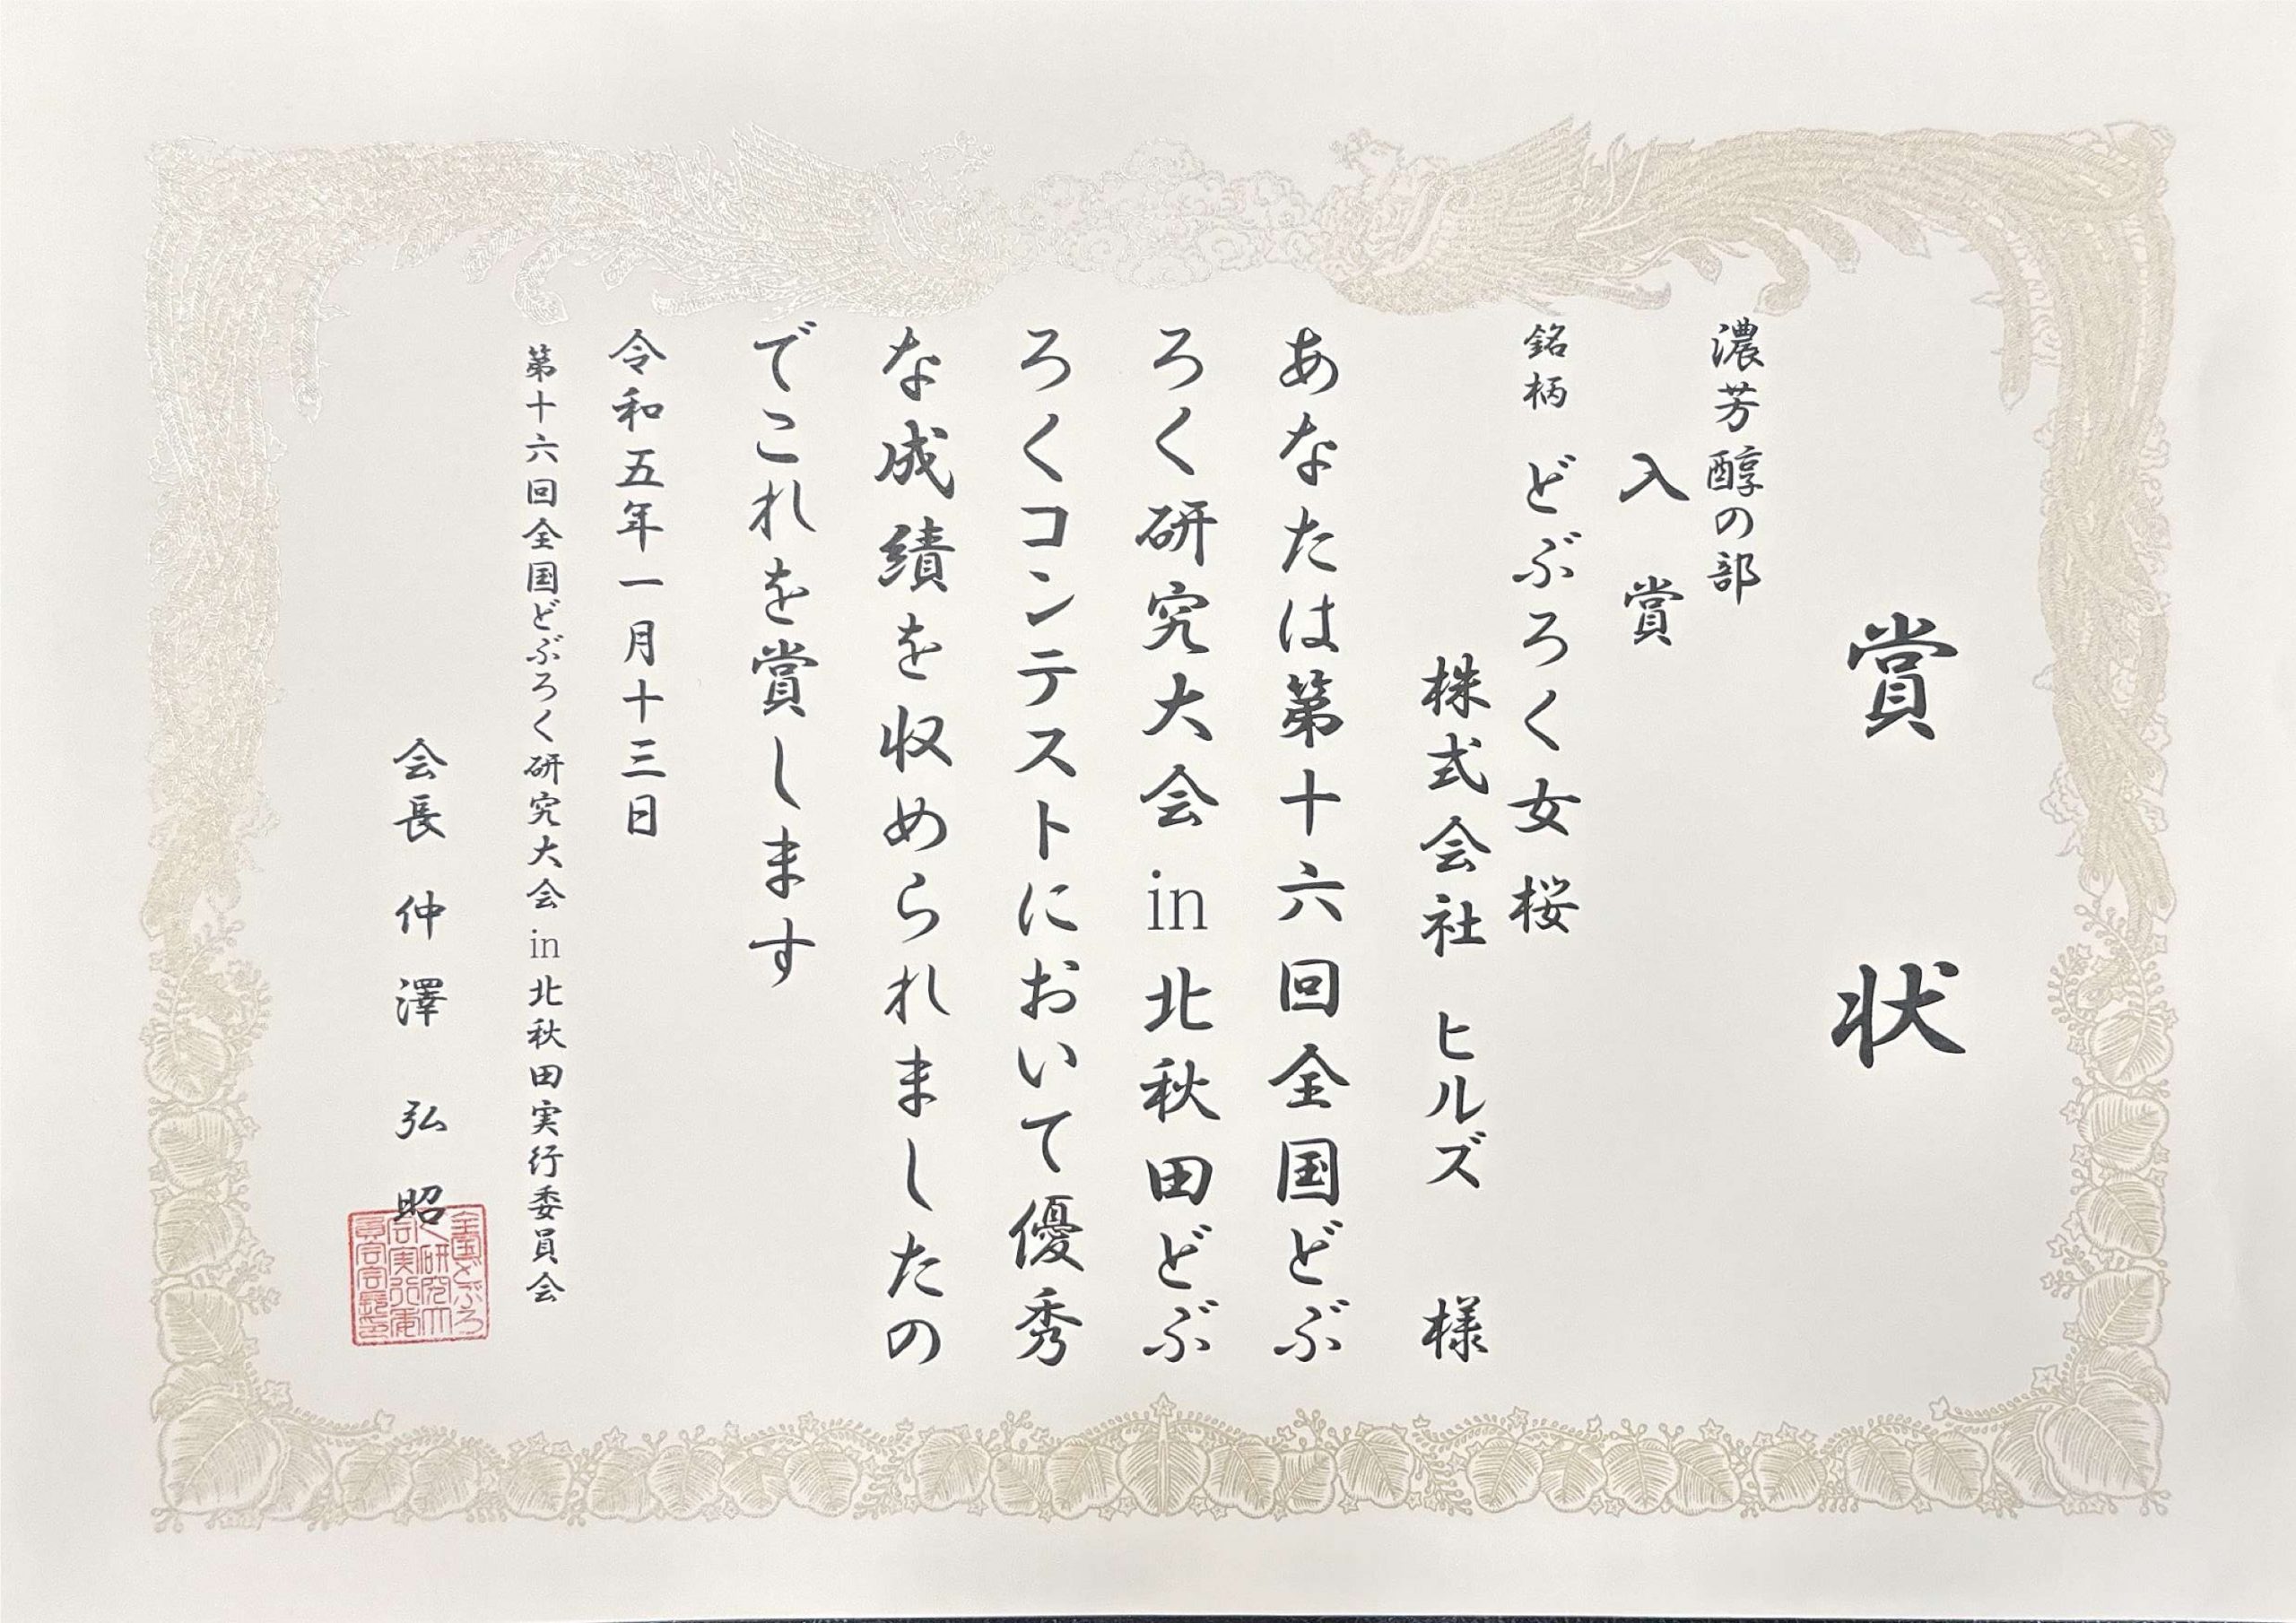 賞状
濃芳醇の部
入賞
銘柄 どぶろく女桜
株式会社 ヒルズ 様
あなたは第十六回全国どぶ
ろく研究大会in北秋田どぶ
ろくコンテストにおいて優秀
な成績を収められましたの
でこれを賞します
令和五年一月十三日
第十六回全国どぶろく研究大会in北秋田実行委員会
会長 仲澤弘昭
全国どぶろ
く研究大
会実行委
員会会長印